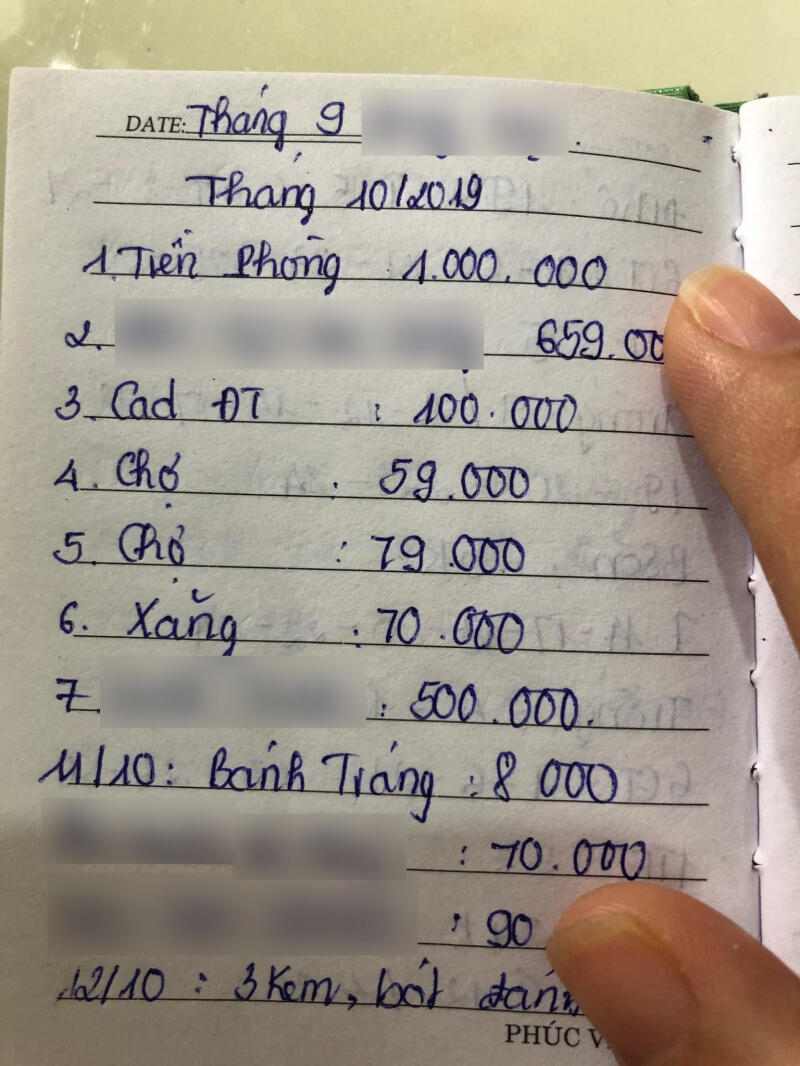 DATE: Tháng 9
Tháng 10/2019
1. Tiền Phòng 1.000.000
2. 659.00
3. Cad ĐT : 100.000
4. Chợ : 59.000
5. Chợ : 79.000
6. Xăng : 70.000
7. : 500.000.
11/10: Bánh Tráng : 8 000
: 70.000
: 90
12/10 : 3 Kem, bót đánh
PHÚC V